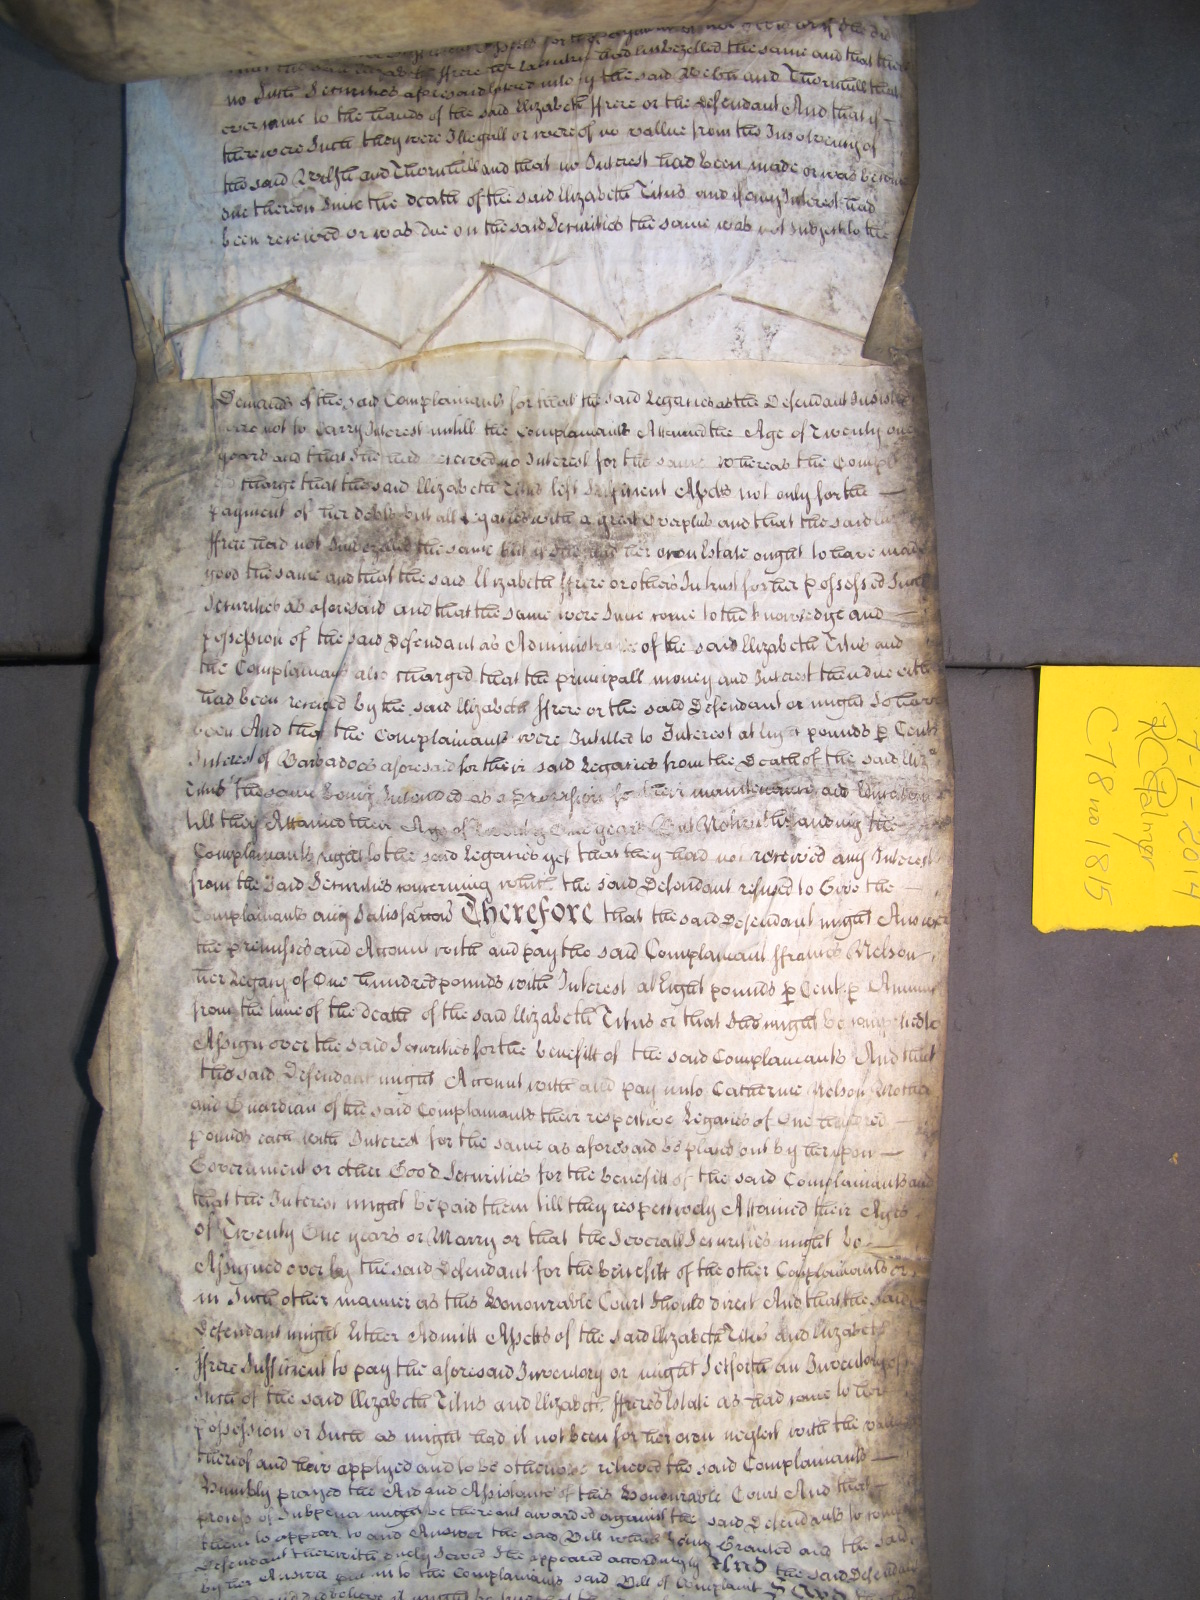 no Such Securities aforesaid entred into by the said Welsh and Thornhill that
ever came to the hands of the said Elizabeth ffrere or the Defendant And that if
there were Such they were Illegall or were of no vallue from the Insolvency of
the said Welsh and Thornhill and that no Interest had been made or was become
due thereon Since the death of the said Elizabeth Titus and if any Interest had
been received or was due on the said Securities the same was not Subject to the
Demands of the said Complainants for that the said Legacies as the Defendant Insisted
were not to Carry Interest untill the Complainants Attained the Age of Twenty one
years and that She had received no Interest for the same Whereas the Compl
charge that the said Elizabeth Titus left Sufficient Assets not only for the
payment of her debts but all Legacies with a great Overplus and that the said
ffrere had not the same but if She had her own Estate ought to have made
good the same and that the said Elizabeth ffrere or others In trust for her possessed Such
Securities as aforesaid and that the same were Since come to the knowledge and
possession of the said Defendant as Administratrix of the said Elizabeth Titus and
the Complainants also charged that the principall money and Interest then due either
had been received by the said Elizabeth ffrere or the said Defendant or might So have
been And that the Complainants were Intitled to Interest at Eight pounds p Cent
Interest of Barbadoes aforesaid for their said Legacies from the Death of the said Eliz
Titus the same being Intended as a Provision for their maintenance and Education
till they Attained their Age of Twenty One years But Notwithstanding the
Complainants right to the said Legacies yet that they had not received any Interest
from the said Securities concerning which the said Defendant refused to Give the
Complainants any Satisfaction Therefore that the said Defendant might Answer
the premisses and Account with and pay the said Complainant ffrances Nelson
her Legacy of One hundred pounds with Interest at Eight pounds p Cent p Annum
from the time of the death of the said Elizabeth Titus or that She might be compelled to
Assign over the said Securities for the benefitt of the said Complainants And that
the said Defendant might Account with and pay unto Catherine Nelson Mother
and Guardian of the said Complainants their respective Legacies of One hundred
pounds each with Interest for the same as aforesaid to be placed out by her upon
Government or other Good Securities for the benefitt of the said Complainants and
that the Interest might be paid them till they respectively Attained their Ages
of Twenty One years or Marry or that the Severall Securities might be
Assigned over by the said Defendant for the benefitt of the other Complainants or
in Such other manner as this Honourable Court Should direct And that the said
Defendant might Either Admitt Assetts of the said Elizabeth Titus and Elizabeth
ffrere Sufficient to pay the aforesaid Inventory or might Setforth an Inventory of
Such of the said Elizabeth Titus and Elizabeth ffreres Estate as had come to her
possession or Such as might had it not been for her own neglect with the value
thereof and how applyed and to be otherwise relieved the said Complainants
Humbly prayed the Aid and Assistance of this Honourable Court And that
process of Subpena might be thereout awarded against the said Defendants to compell
them to appear to and Answer the said Bill which being Granted and the said
Defendant therewith duely Served She appeared accordingly And the said Defendant
by her Answer put in to the Complainants said Bill of Complaint Saith
7-1-2014
RCPalmer
C78 no 1815